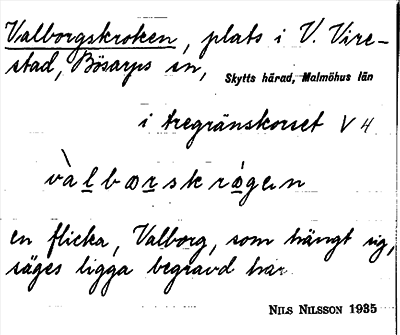 Valborgskroken, plats i V. Vire-
stad, Bösarps sn, Skytts härad, Malmöhus län
i tregränskorset V 4
và l b œ r s k r ò ǥ ə n
en flicka, Valborg, som hängt sig,
säges ligga begravd här
NILS NILSSON 1935